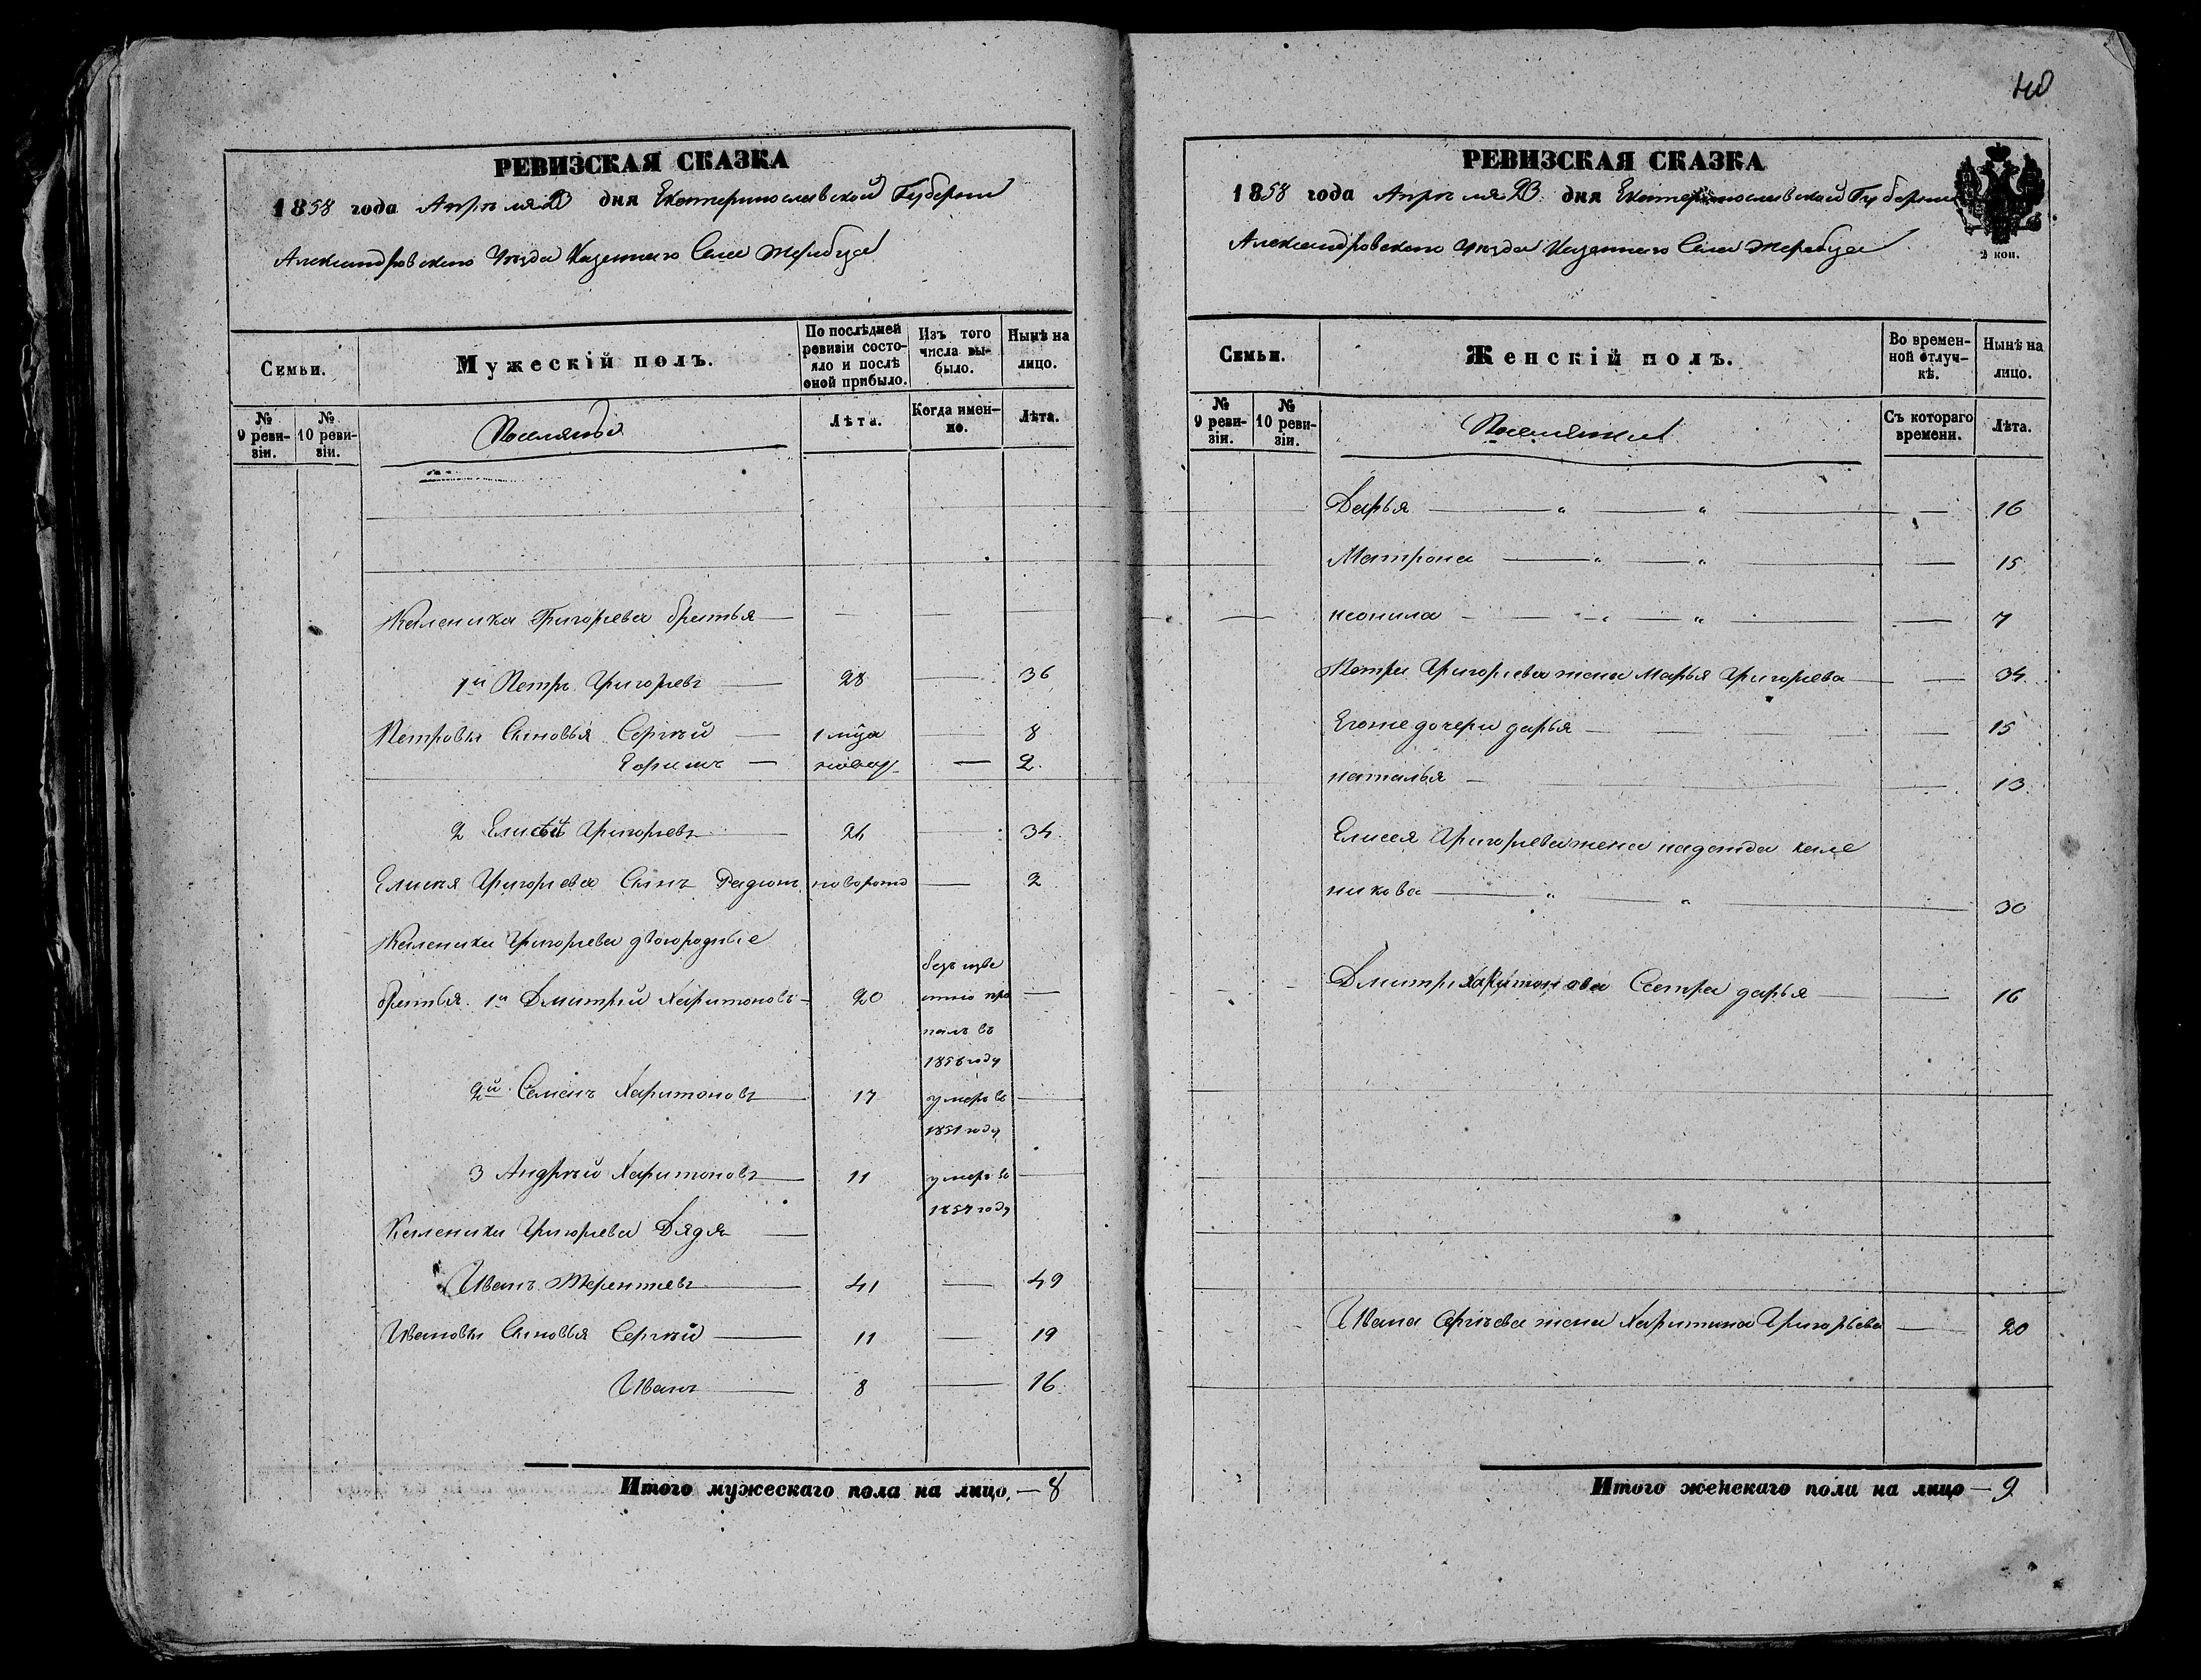 РЕВИЗСКАЯ СКАЗКА
1858 года Апрѣля 23 дня Екатеринославской Губерніи
Александровскаго Уѣзда Казеннаго Села Жеребца
Семьи.
Мужескій полъ.
По послѣдней ревизіи состояло и послѣ оной прибыло.
Изъ того числа выбыло.
Нынѣ на лицо.
№ 9 ревизіи.
№ 10 ревизіи.
Поселяне
Лѣта.
Когда именно.
Лѣта.
Каленика Григорьева братья —
1й Петръ Григорьевъ — 28 — 36
Петровы Сыновья Сергѣй — 1 мѣся — 8
Ефимъ — новор. — 2.
2 Елисѣй Григорьевъ — 26 — 34.
Елисѣя Григорьева Сынъ Радіонъ новорожд — 2
Каленика Григорьева двоюродные
братья. 1й Дмитрій Харитоновъ — 20 безъ изве
стно про
палъ въ
1856 году —
2й Семенъ Харитоновъ — 17 умеръ въ —
1851 году
3 Андрѣй Харитоновъ — 11 умеръ въ —
1857 году
Каленика Григорьева Дядя —
Иванъ Терентьевъ — 41 — 49
Ивановы Сыновья Сергѣй — 11 — 19
Иванъ — 8 — 16.
Итого мужескаго пола на лицо, — 8
40
РЕВИЗСКАЯ СКАЗКА
1858 года Апрѣля 23 дня Екатеринославской Губерніи
Александровскаго Уѣзда Казеннаго Села Жеребца
2 коп.
Семьи.
Женскій полъ.
Во временной отлучкѣ.
Нынѣ на лицо.
№ 9 ревизіи.
№ 10 ревизіи.
Поселянки
Съ котораго времени.
Лѣта.
Дарья — „ — „ — 16
Матрона — „ — „ — 15
неонила — „ — „ — 7
Петра Григорьева жена Марья Григорьева — 34.
Егоже дочери дарья — 15
наталья — 13.
Елисея Григорьева жена надежда кале
никова — „ — „ — 30
Дмитрія Харитонова Сестра дарья — 16
Ивана Сергѣева жена Харитина Григорьева — 20
Итого женскаго пола на лицо — 9